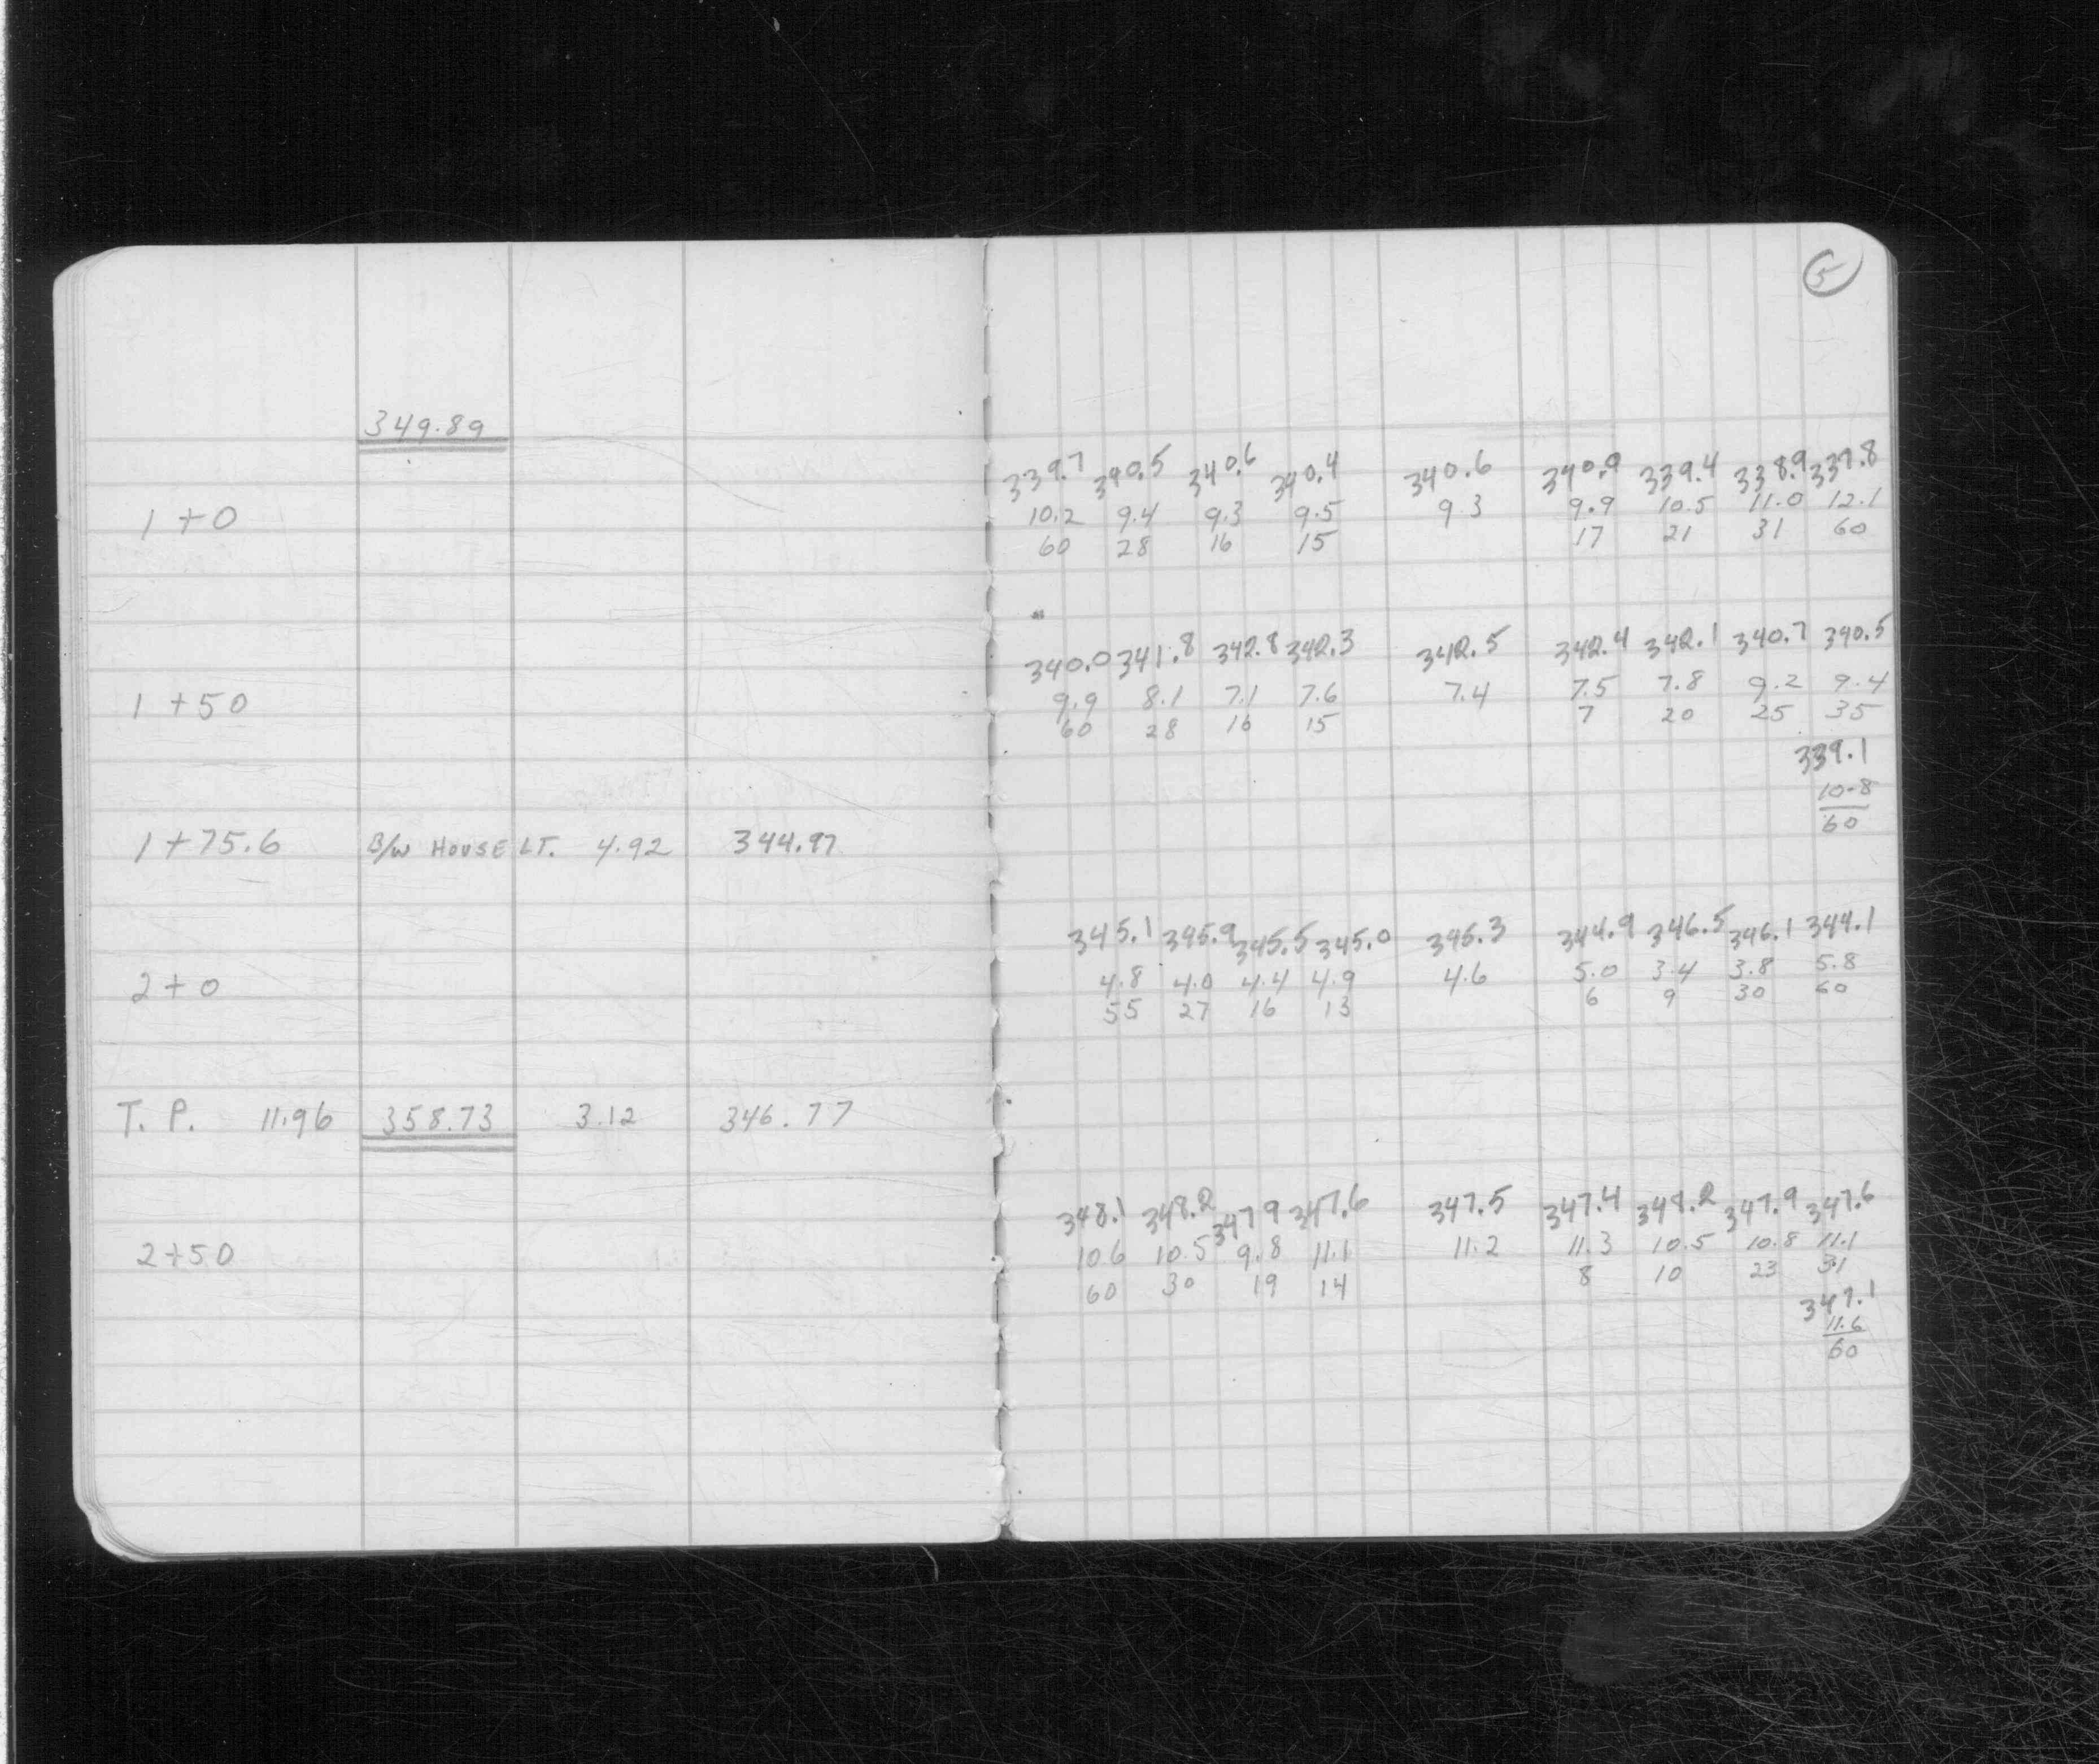 5
349.89
339.7 340.5 340.6 340.4 340.6 340.9 339.4 338.9 337.8
1+0 10.2 9.4 9.3 9.5 9.3 9.9 10.5 11.0 12.1
60 28 16 15 17 21 31 60
340.0 341.8 342.8 342.3 342.5 342.4 342.1 340.7 340.5
1+50 9.9 8.1 7.1 7.6 7.4 7.5 7.8 9.2 9.4
60 28 16 15 7 20 25 35
339.1
10.8
60
1+75.6 B/W HOUSE LT. 4.92 344.97
345.1 345.9 345.5 345.0 345.3 344.9 346.5 346.1 344.1
2+0 4.8 4.0 4.4 4.9 4.6 5.0 3.4 3.8 5.8
55 27 16 13 6 9 30 60
T. P. 11.96 358.73 3.12 346.77
348.1 348.2 347.9 347.6 347.5 347.4 348.2 347.9 347.6
2+50 10.6 10.5 9.8 11.1 11.2 11.3 10.5 10.8 11.1
60 30 19 14 8 10 23 31
347.1
11.6
60